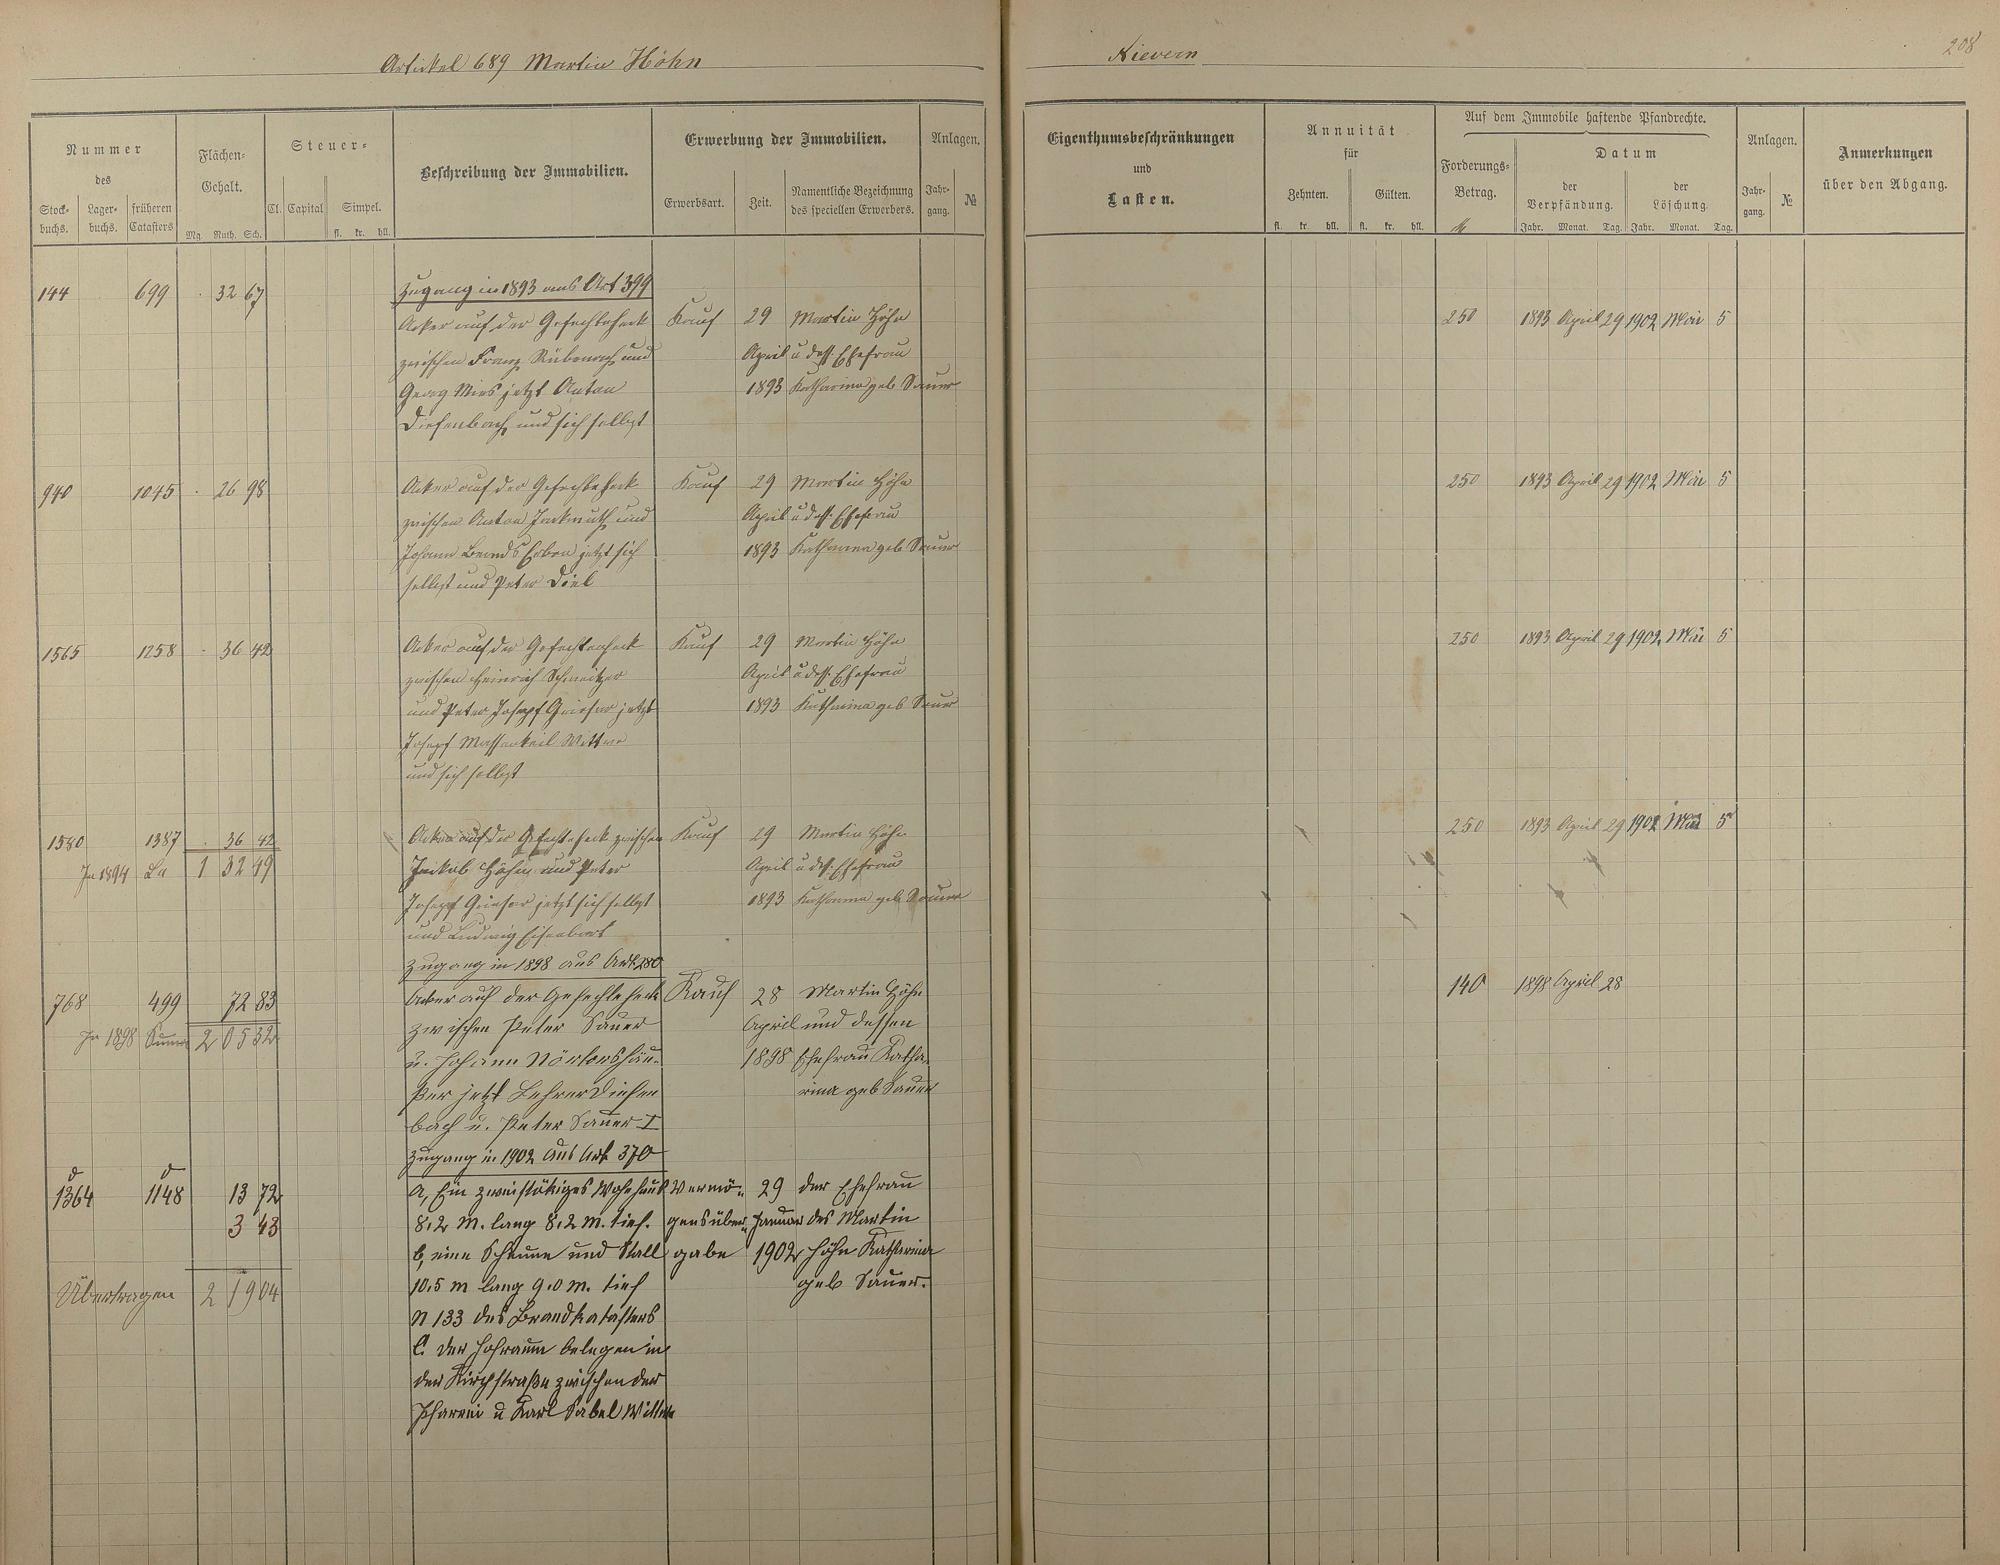 Artickel 689 Martin Höhn
Nievern
208
Nummer
des
Stock-
buchs.
Lager-
buchs.
früheren
Catasters
Flächen-
Gehalt.
Mg. Ruth. Sch.
Steuer-
Cl. Capital Simpel.
fl. kr. hll.
Beschreibung der Immobilien.
Erwerbung der Immobilien.
Erwerbsart. Zeit.
Namentliche Bezeichnung
des speciellen Erwerbers.
Anlagen.
Jahr-
gang.
№
Eigenthumsbeschränkungen
und
Lasten.
Annuität
für
Zehnten. Gülten.
fl. kr. hll. fl. kr. hll.
Auf dem Immobile haftende Pfandrechte.
Forderungs-
Betrag.
M
Datum
der
Verpfändung.
der
Löschung.
Jahr. Monat. Tag. Jahr. Monat. Tag.
Anlagen.
Jahr-
gang.
№
Anmerkungen
über den Abgang.
Zugang in 1893 aus Art 399
144 699 . 32 67
Acker auf der Gefechtsheck Kauf 29 Martin Höhn 250 1893 April 29 1902 Mai 5
zwischen Franz und April u dess. Ehefrau
Georg Mies jetzt Anton 1893 Katharina geb Sauer
Diefenbach und sich selbst
940 1045 . 26 98 Acker auf der Gefechtsheck Kauf 29 Martin Höhn 250 1893 April 29 1902 Mai 5
zwischen Anton und April u dess. Ehefrau
Johann Erben jetzt sich 1893 Katharina geb Sauer
selbst und Peter Diel
1565 1258 . 36 42 Acker auf der Gefechtsheck Kauf 29 Martin Höhn 250 1893 April 29 1902 Mai 5
zwischen Heinrich Schweitzer April u dess. Ehefrau
und Peter Josepf jetzt 1893 Katharina geb Sauer
Josepf Massenkeil Wittwe
und sich selbst
1580 1387 . 36 42 Acker auf der Gefechtsheck zwischen Kauf 29 Martin Höhn 250 1893 April 29 1902 Mai 5
In 1894 1 32 49 Jackob Höhn und Peter April u dess. Ehefrau
Josepf jetzt sich selbst 1893 Katharina geb Sauer
und Ludwig Eisenbart
Zugang in 1898 aus Art 280
768 499 72 83 Acker auf der Gefechtsheck Kauf 28 Martin Höhn 140 1898 April 28
In 1898 Summa 2 05 32 zwischen Peter Sauer April und dessen
u. Johann Nörtershäu- 1898 Ehefrau Katha-
ßer jetzt Lehrer Diefen rina geb Sauer
bach u. Peter Sauer I
Zugang in 1902 aus Art 370
1364 1148 13 72 a, Ein zweistökiges Wohnhaus Vermö- 29 der Ehefrau
3 43 8,2 M. lang 8,2 M. tief. gensüber- Januar des Martin
b, eine Scheune und Stall gabe 1902 Höhn Katharina
Übertragen 2 19 04 10,5 m lang 9,0 m. tief geb Sauer.
N 133 des Brandkatasters
C. der Hofraum belegen in
der Kirchstraße zwischen der
Pfarrei u Karl Sabel Wittwe